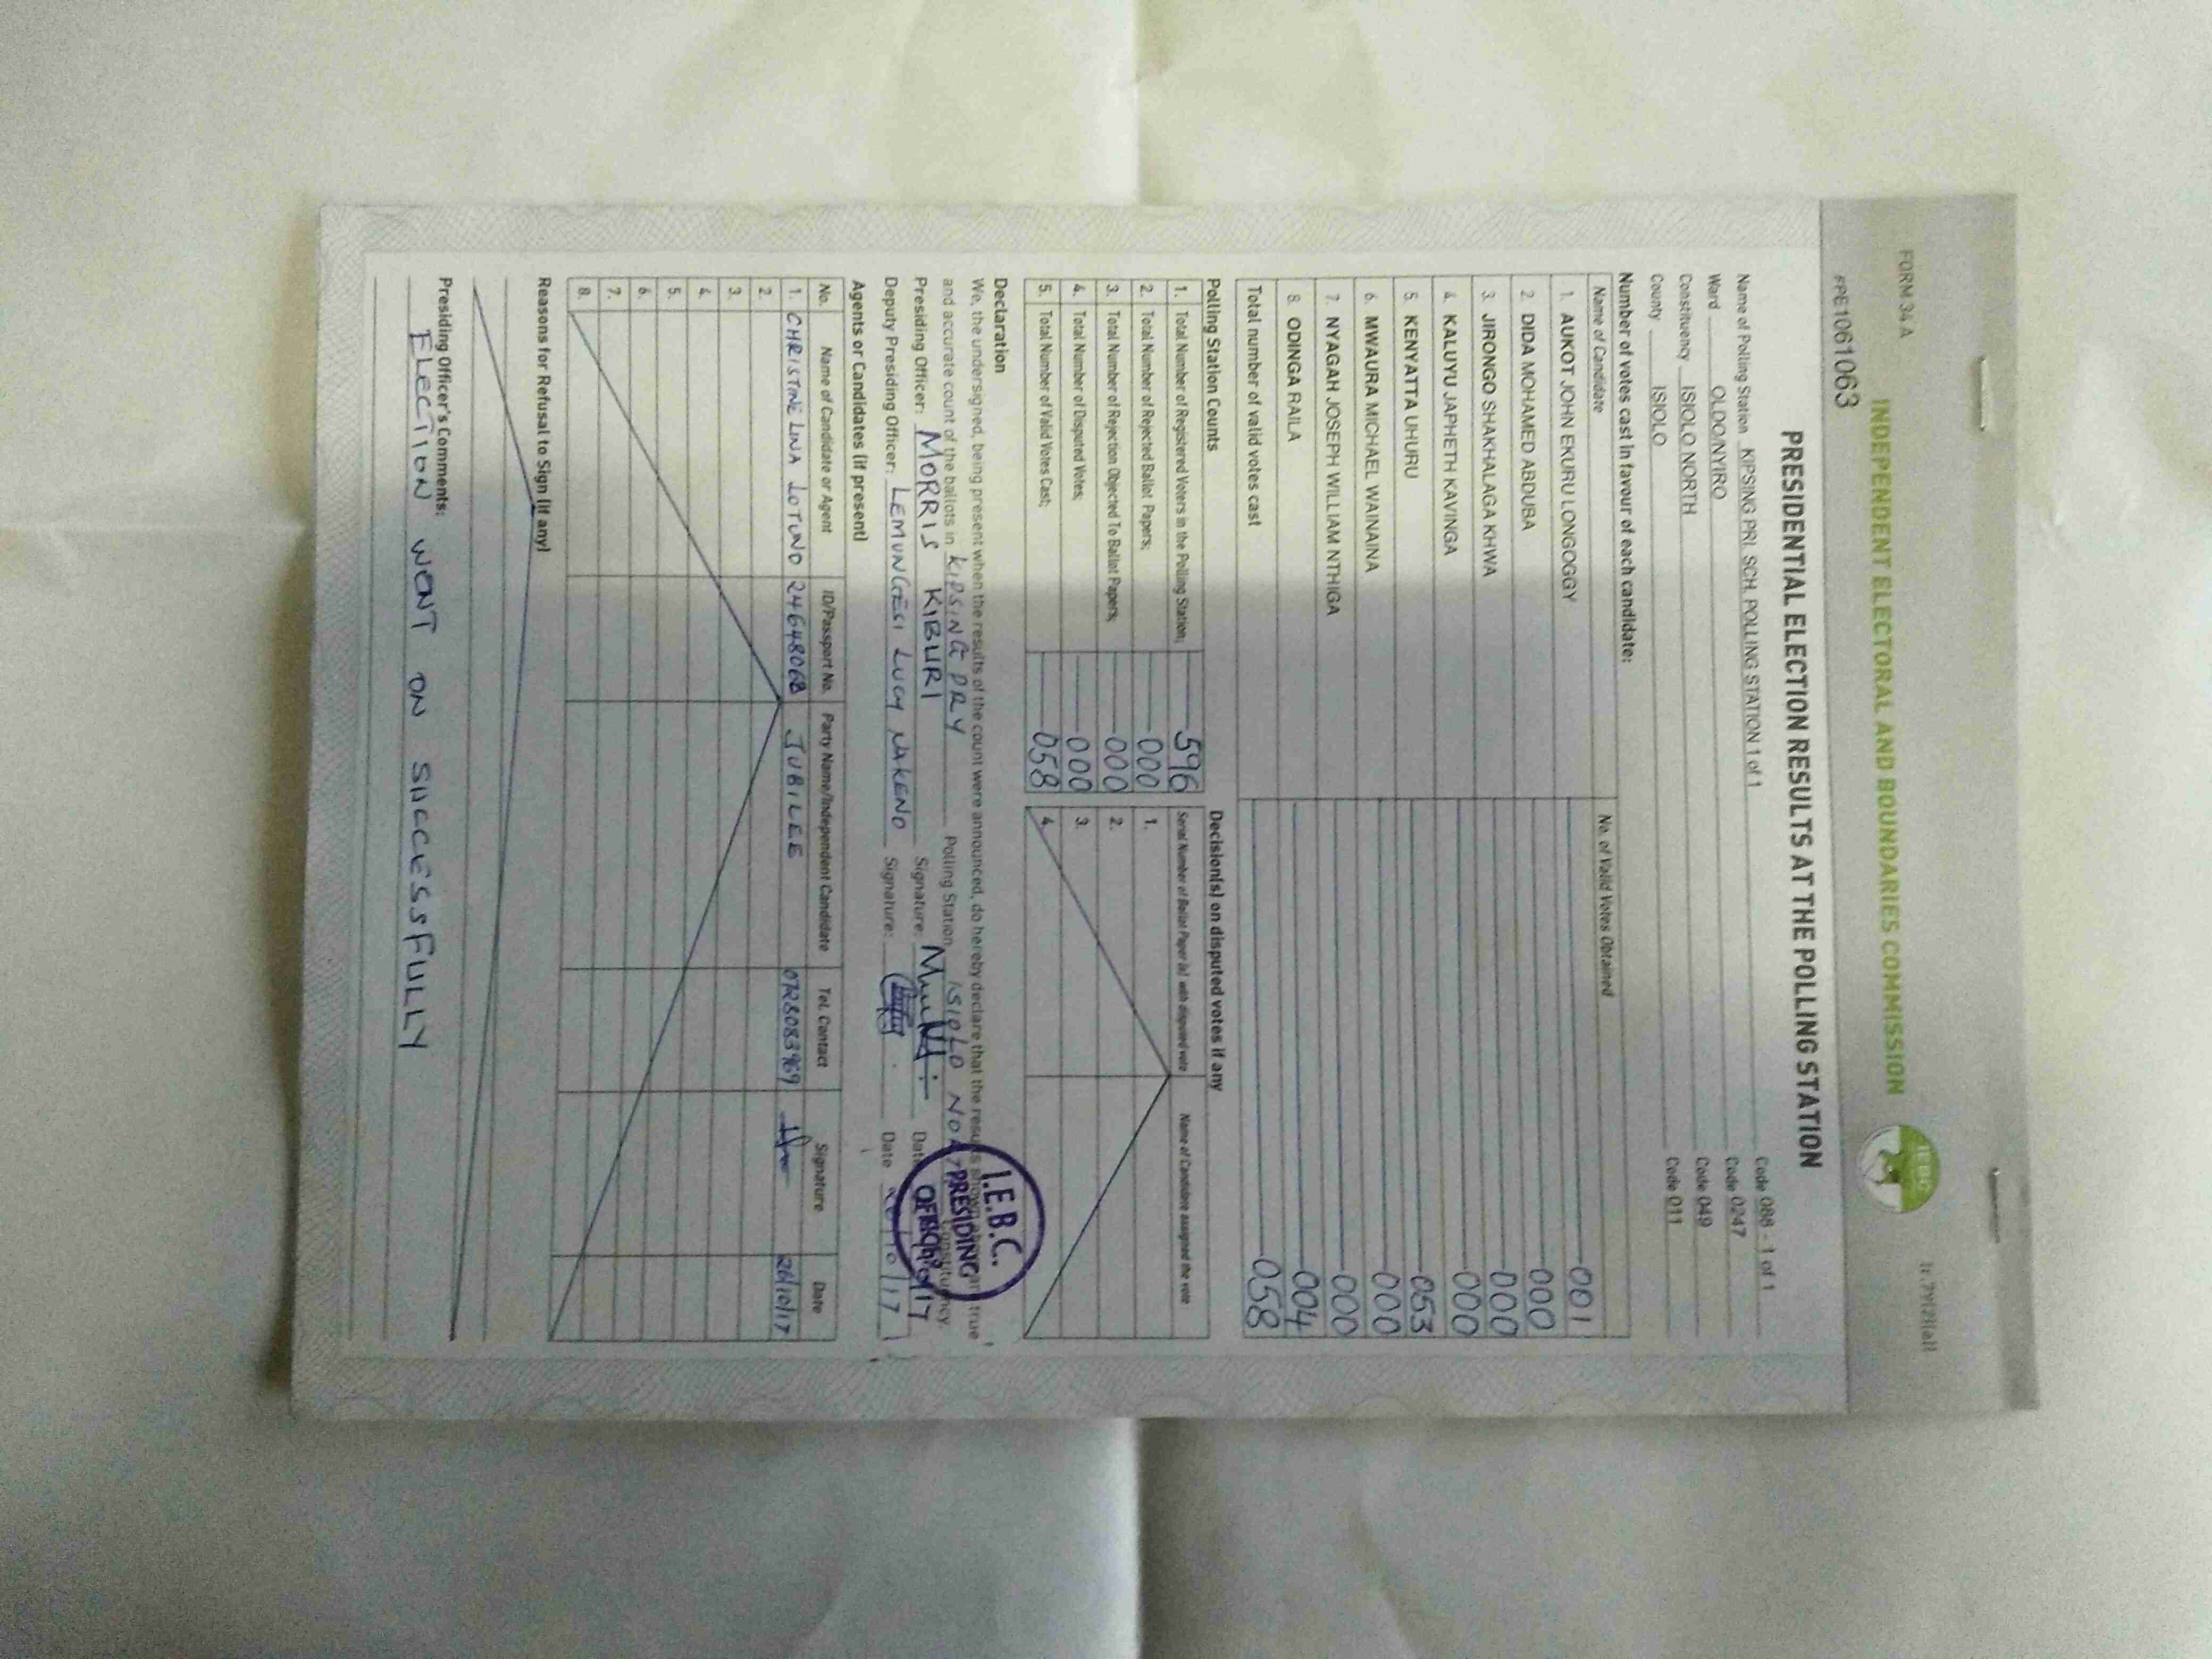 FORM 34 A
INDEPENDENT ELECTORAL AND BOUNDARIES COMMISSION
IEBC
PRESIDENTIAL ELECTION RESULTS AT THE POLLING STATION
Name of Polling Station KIPSING PRI. SCH. POLLING STATION 1 of 1 Code 088 - 1 of 1
Ward OLDO/NYIRO Code 0247
Constituency ISIOLO NORTH Code 049
County ISIOLO Code 011
Number of votes cast in favour of each candidate:
Name of Candidate No. of Valid Votes Obtained
1. AUKOT JOHN EKURU LONGOGGY 001
2. DIDA MOHAMED ABDUBA 000
3. JIRONGO SHAKHALAGA KHWA 000
4. KALUYU JAPHETH KAVINGA 000
5. KENYATTA UHURU 053
6. MWAURA MICHAEL WAINAINA 000
7. NYAGAH JOSEPH WILLIAM NTHIGA 000
8. ODINGA RAILA 004
Total number of valid votes cast 058
Polling Station Counts
1. Total Number of Registered Voters in the Polling Station; 596
2. Total Number of Rejected Ballot Papers; 000
3. Total Number of Rejection Objected To Ballot Papers; 000
4. Total Number of Disputed Votes; 000
5. Total Number of Valid Votes Cast; 058
Decision(s) on disputed votes if any
Serial Number of Ballot Paper (s) with disputed vote Name of Candidate assigned the vote
1.
2.
3.
4.
Declaration
We, the undersigned, being present when the results of the count were announced, do hereby declare that the results shown above are true
and accurate count of the ballots in KIPSING PRY Polling Station ISIOLO NORTH Constituency.
Presiding Officer: MORRIS KIBURI Signature: Date
Deputy Presiding Officer: LEMUNGESI LUCY NAKENO Signature: Date
I.E.B.C.
PRESIDING
OFFICER
Agents or Candidates (if present)
No. Name of Candidate or Agent ID/Passport No. Party Name/Independent Candidate Tel. Contact Signature Date
1. CHRISTINE LINA LOTUNO 24648068 JUBILEE 0728083969 26/10/17
2.
3.
4.
5.
6.
7.
8.
Reasons for Refusal to Sign (if any)
Presiding Officer's Comments:
ELECTION WENT ON SUCCESSFULLY